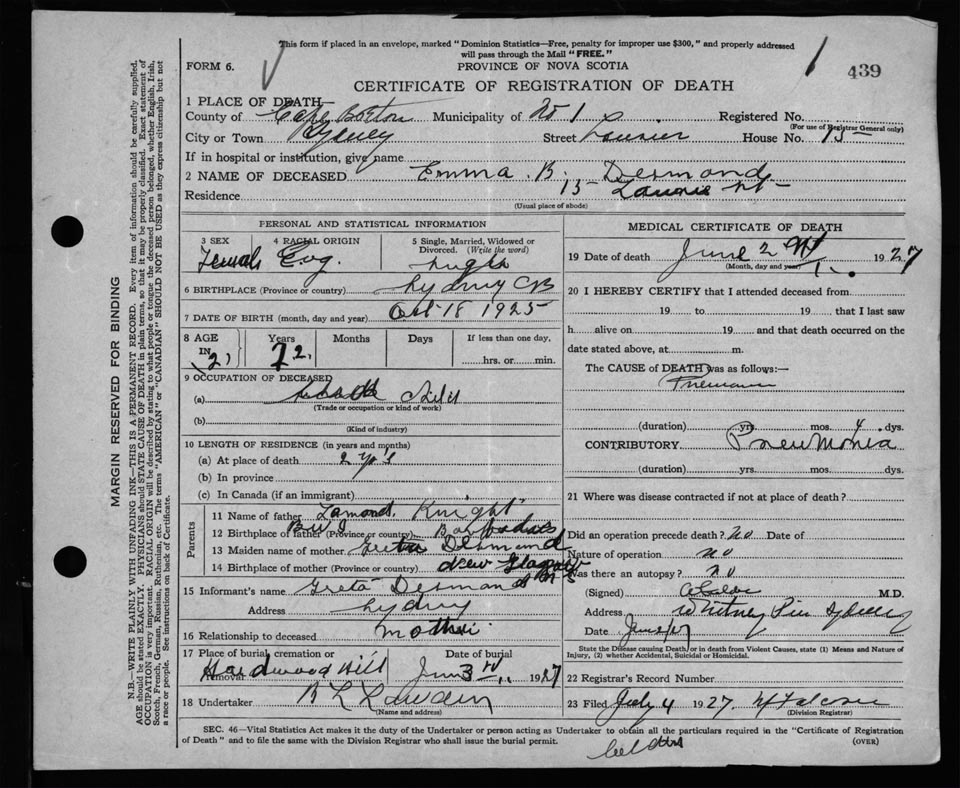 This form if placed in an envelope, marked "Dominion Statistics—Free, penalty for improper use $300," and properly addressed
will pass through the Mail "FREE."
FORM 6. PROVINCE OF NOVA SCOTIA 439
CERTIFICATE OF REGISTRATION OF DEATH
1 PLACE OF DEATH—
County of Cape Breton Municipality of No 1 Registered No.
(For use of Registrar General only)
City or Town Sydney Street House No. 15
If in hospital or institution, give name
2 NAME OF DECEASED Emma B. Desmond
Residence 15 St
(Usual place of abode)
PERSONAL AND STATISTICAL INFORMATION
3 SEX 4 RACIAL ORIGIN 5 Single, Married, Widowed or
Divorced. (Write the word)
Female Eng. Single
6 BIRTHPLACE (Province or country) Sydney CB
7 DATE OF BIRTH (month, day and year) Oct 18 1925
8 AGE Years Months Days If less than one day,
IN 2 hrs. or min.
9 OCCUPATION OF DECEASED
(a) Child
(Trade or occupation or kind of work)
(b)
(Kind of industry)
10 LENGTH OF RESIDENCE (in years and months)
(a) At place of death 2 yrs
(b) In province
(c) In Canada (if an immigrant)
Parents
11 Name of father Knight
12 Birthplace of father (Province or country) B.W.I. Barbados
13 Maiden name of mother Greta Desmond
14 Birthplace of mother New Glasgow N.S
15 Informant's name Greta Desmond
Address Sydney
16 Relationship to deceased mother
17 Place of burial, cremation or removal Date of burial
Hardwood Hill June 3rd 1927
18 Undertaker
(Name and address)
MEDICAL CERTIFICATE OF DEATH
19 Date of death June 2 1927
(Month, day and year)
20 I HEREBY CERTIFY that I attended deceased from
19 to 19 that I last saw
h alive on 19 and that death occurred on the
date stated above, at m.
The CAUSE of DEATH was as follows:—
(duration) yrs. mos. 4 dys.
CONTRIBUTORY Pneumonia
(duration) yrs. mos. dys.
21 Where was disease contracted if not at place of death?
Did an operation precede death? No Date of
Nature of operation No
Was there an autopsy? No
(Signed) M.D.
Address Whitney Pier Sydney
Date
State the Disease causing Death, or in death from Violent Causes, state (1) Means and Nature of
Injury, (2) whether Accidental, Suicidal or Homicidal.
22 Registrar's Record Number
23 Filed July 4 1927.
(Division Registrar)
SEC. 46—Vital Statistics Act makes it the duty of the Undertaker or person acting as Undertaker to obtain all the particulars required in the "Certificate of Registration
of Death" and to file the same with the Division Registrar who shall issue the burial permit. (OVER)
MARGIN RESERVED FOR BINDING
N.B.—WRITE PLAINLY WITH UNFADING INK—THIS IS A PERMANENT RECORD. Every item of information should be carefully supplied.
AGE should be stated EXACTLY. PHYSICIANS should STATE CAUSE OF DEATH in plain terms, so that it may be properly classified. Exact statement of
OCCUPATION is very important. RACIAL ORIGIN will be described by stating to what people or tongue the deceased person belonged, whether English, Irish,
Scotch, French, German, Russian, Ruthenian, etc. The terms "AMERICAN" or "CANADIAN" SHOULD NOT BE USED as they express citizenship but not
a race or people. See instructions on back of Certificate.